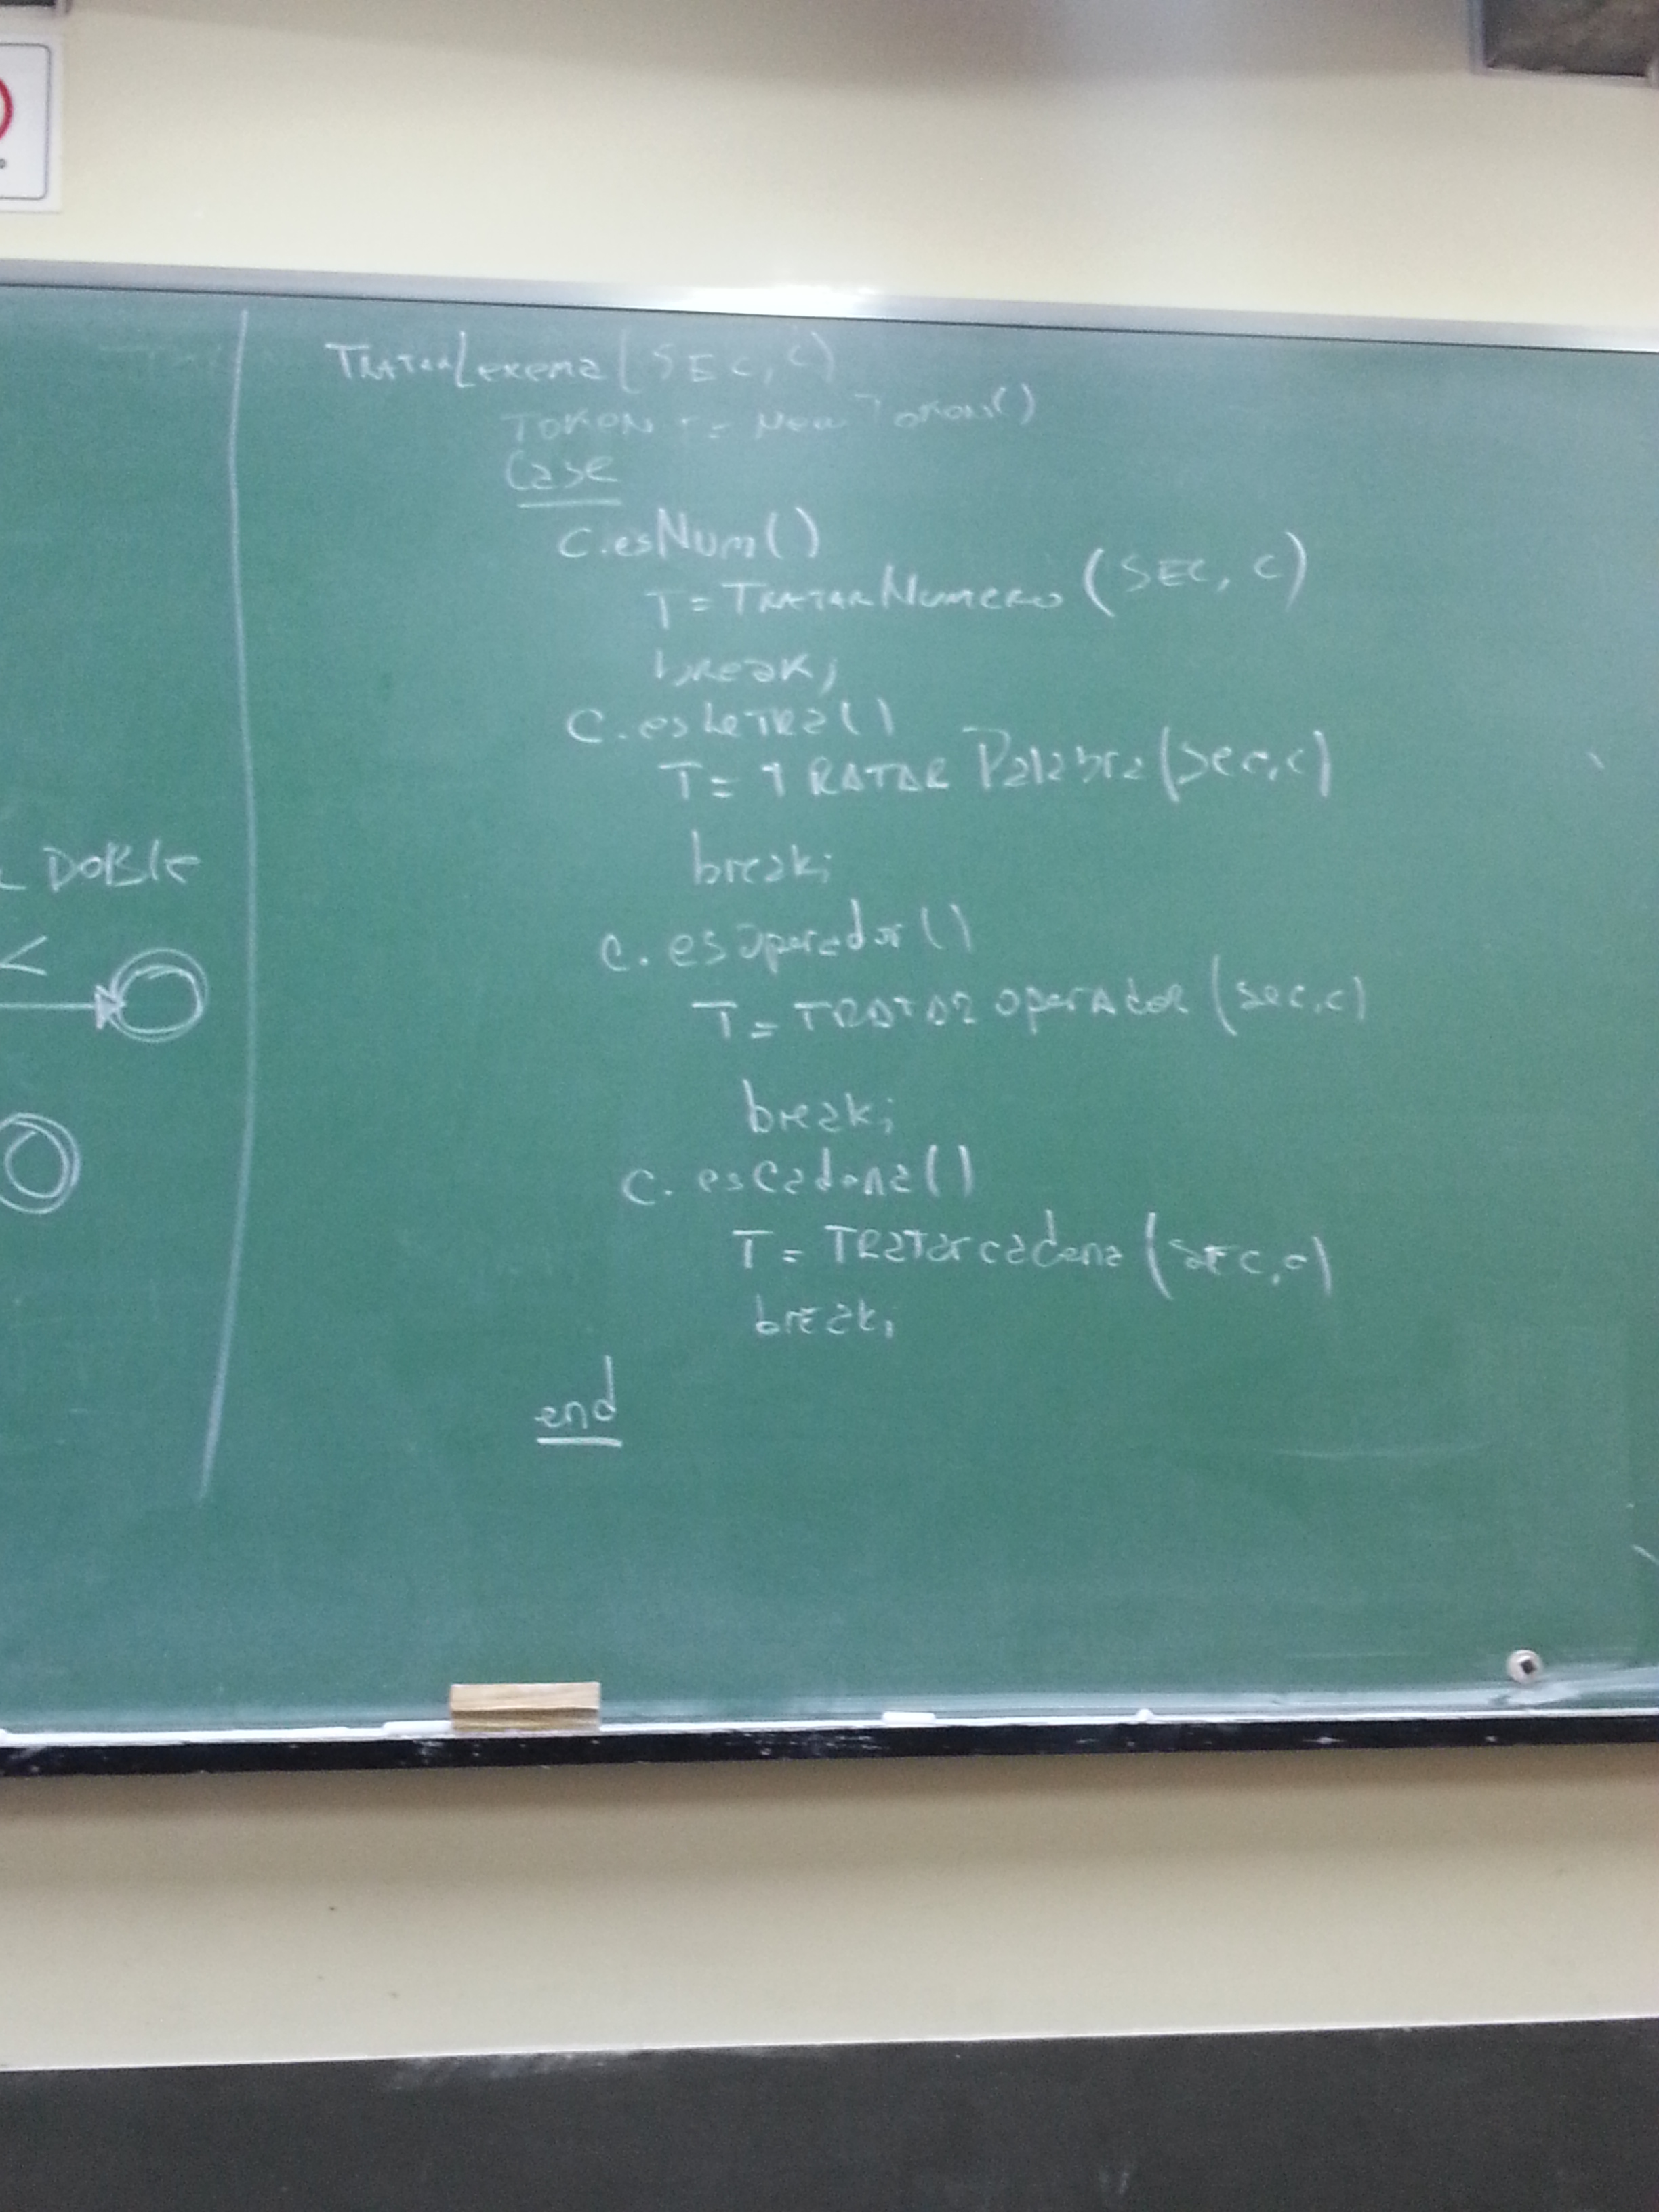 TratarLexema(SEC, C)
TOKEN T = New Token()
Case
C.esNum()
T = TRATARNumero (SEC, C)
break;
C.esLeTRa()
T = TRATAR Palabra (Sec, c)
break;
C. esOperador()
T = TRATAR operador (sec, c)
break;
C. esCadena()
T = TRatarcadena (SEC, c)
break;
end
DOBLE
<